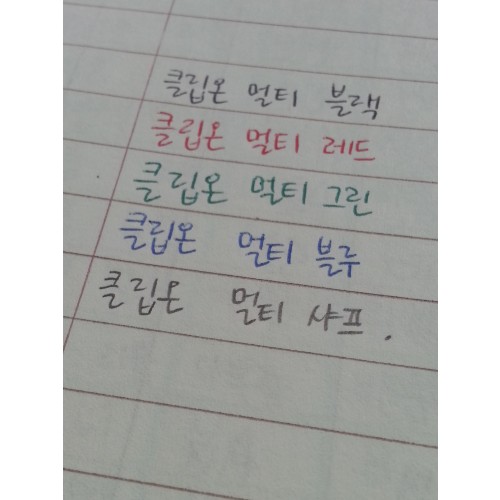 클립온 멀티 블랙
클립온 멀티 레드
클립온 멀티 그린
클립온 멀티 블루
클립온 멀티 샤프.